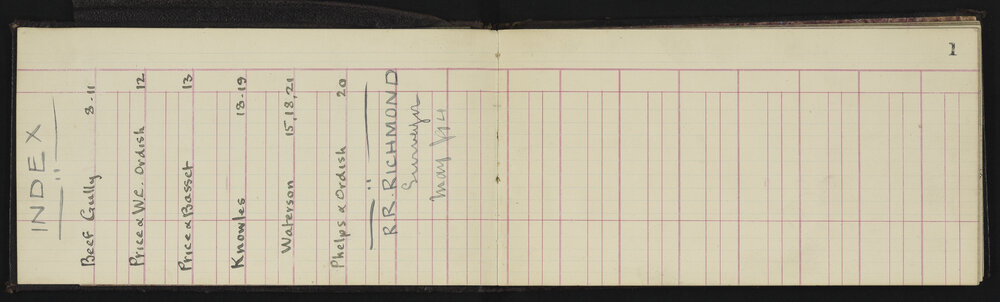 INDEX
Beef Gully 3-11
Price & W.C. Ordish 12
Price & Basset 13
Knowles 13-19
Waterson 15,18,21
Phelps & Ordish 20
R R. RICHMOND
Surveyor
May
1